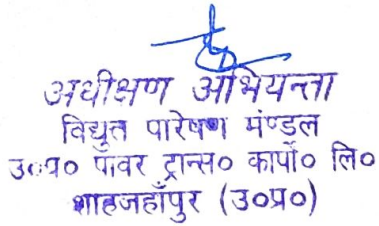 अधीक्षण अभियन्ता
विद्युत पारेषण मंण्डल
उ०प्र० पॉवर ट्रान्स० कार्पो० लि०
शाहजहाँपुर (उ०प्र०)